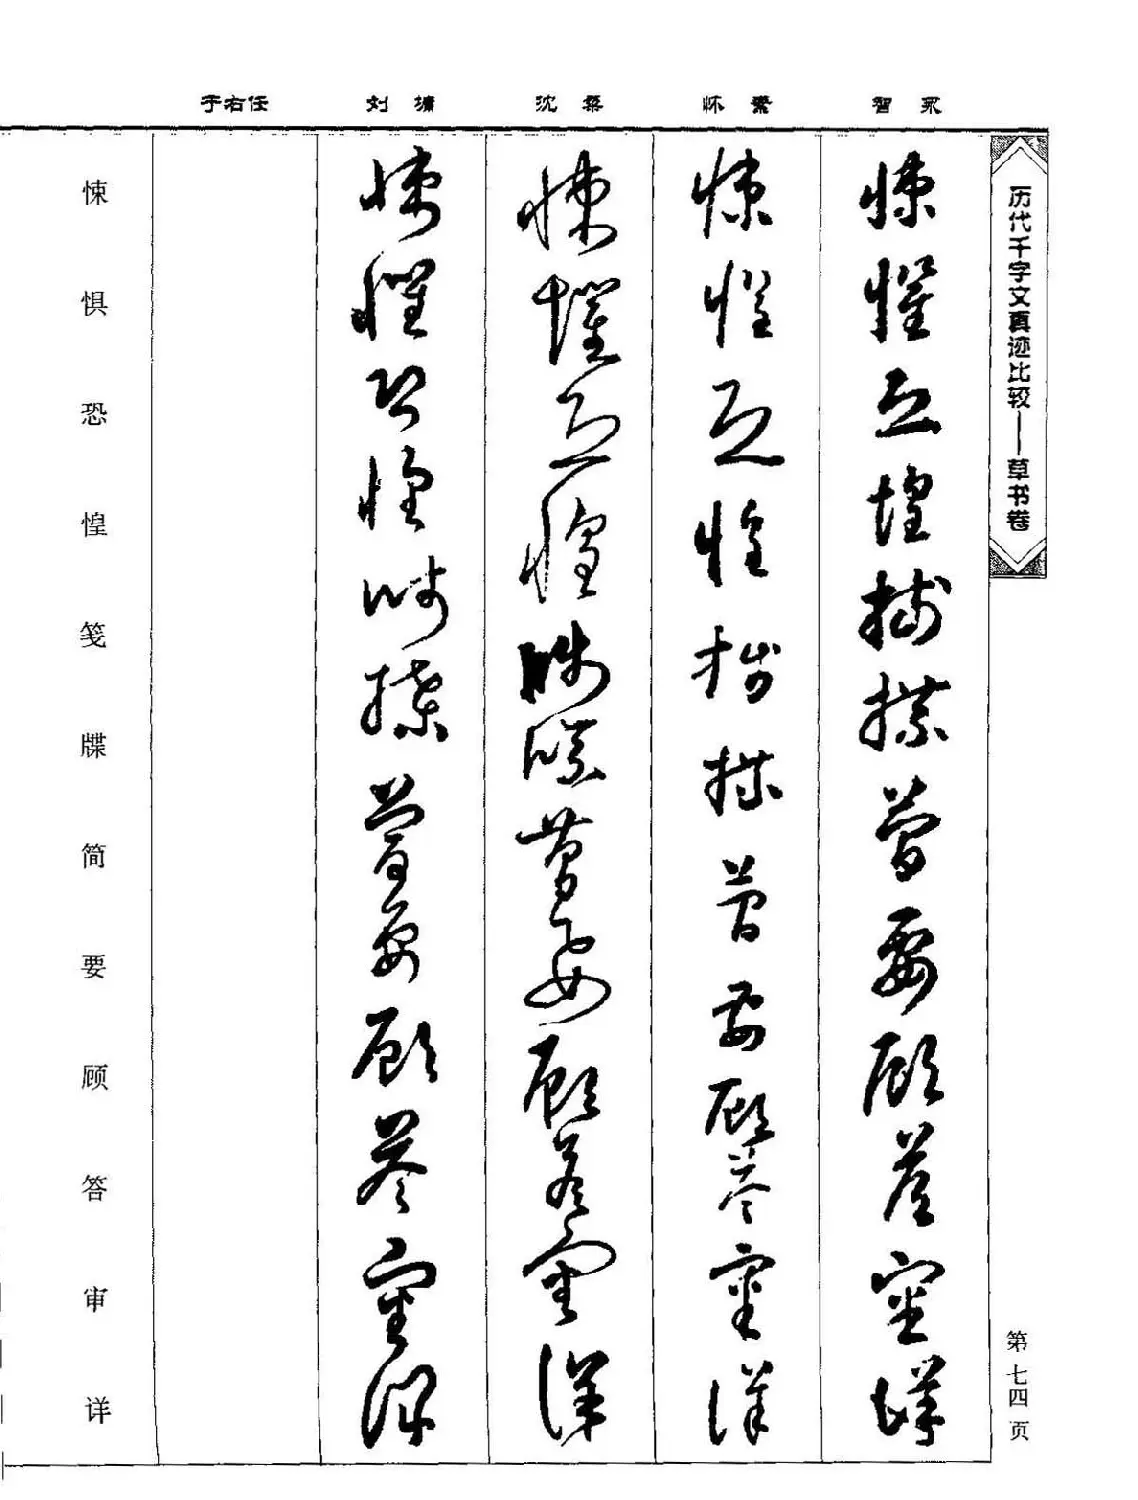 历代千字文真迹比较——草书卷
第七四页
智永
悚惧恐惶笺牒简要顾答审详
怀素
悚惧恐惶笺牒简要顾答审详
沈粲
悚惧恐惶笺牒简要顾答审详
刘墉
悚惧恐惶笺牒简要顾答审详
于右任
悚惧恐惶笺牒简要顾答审详